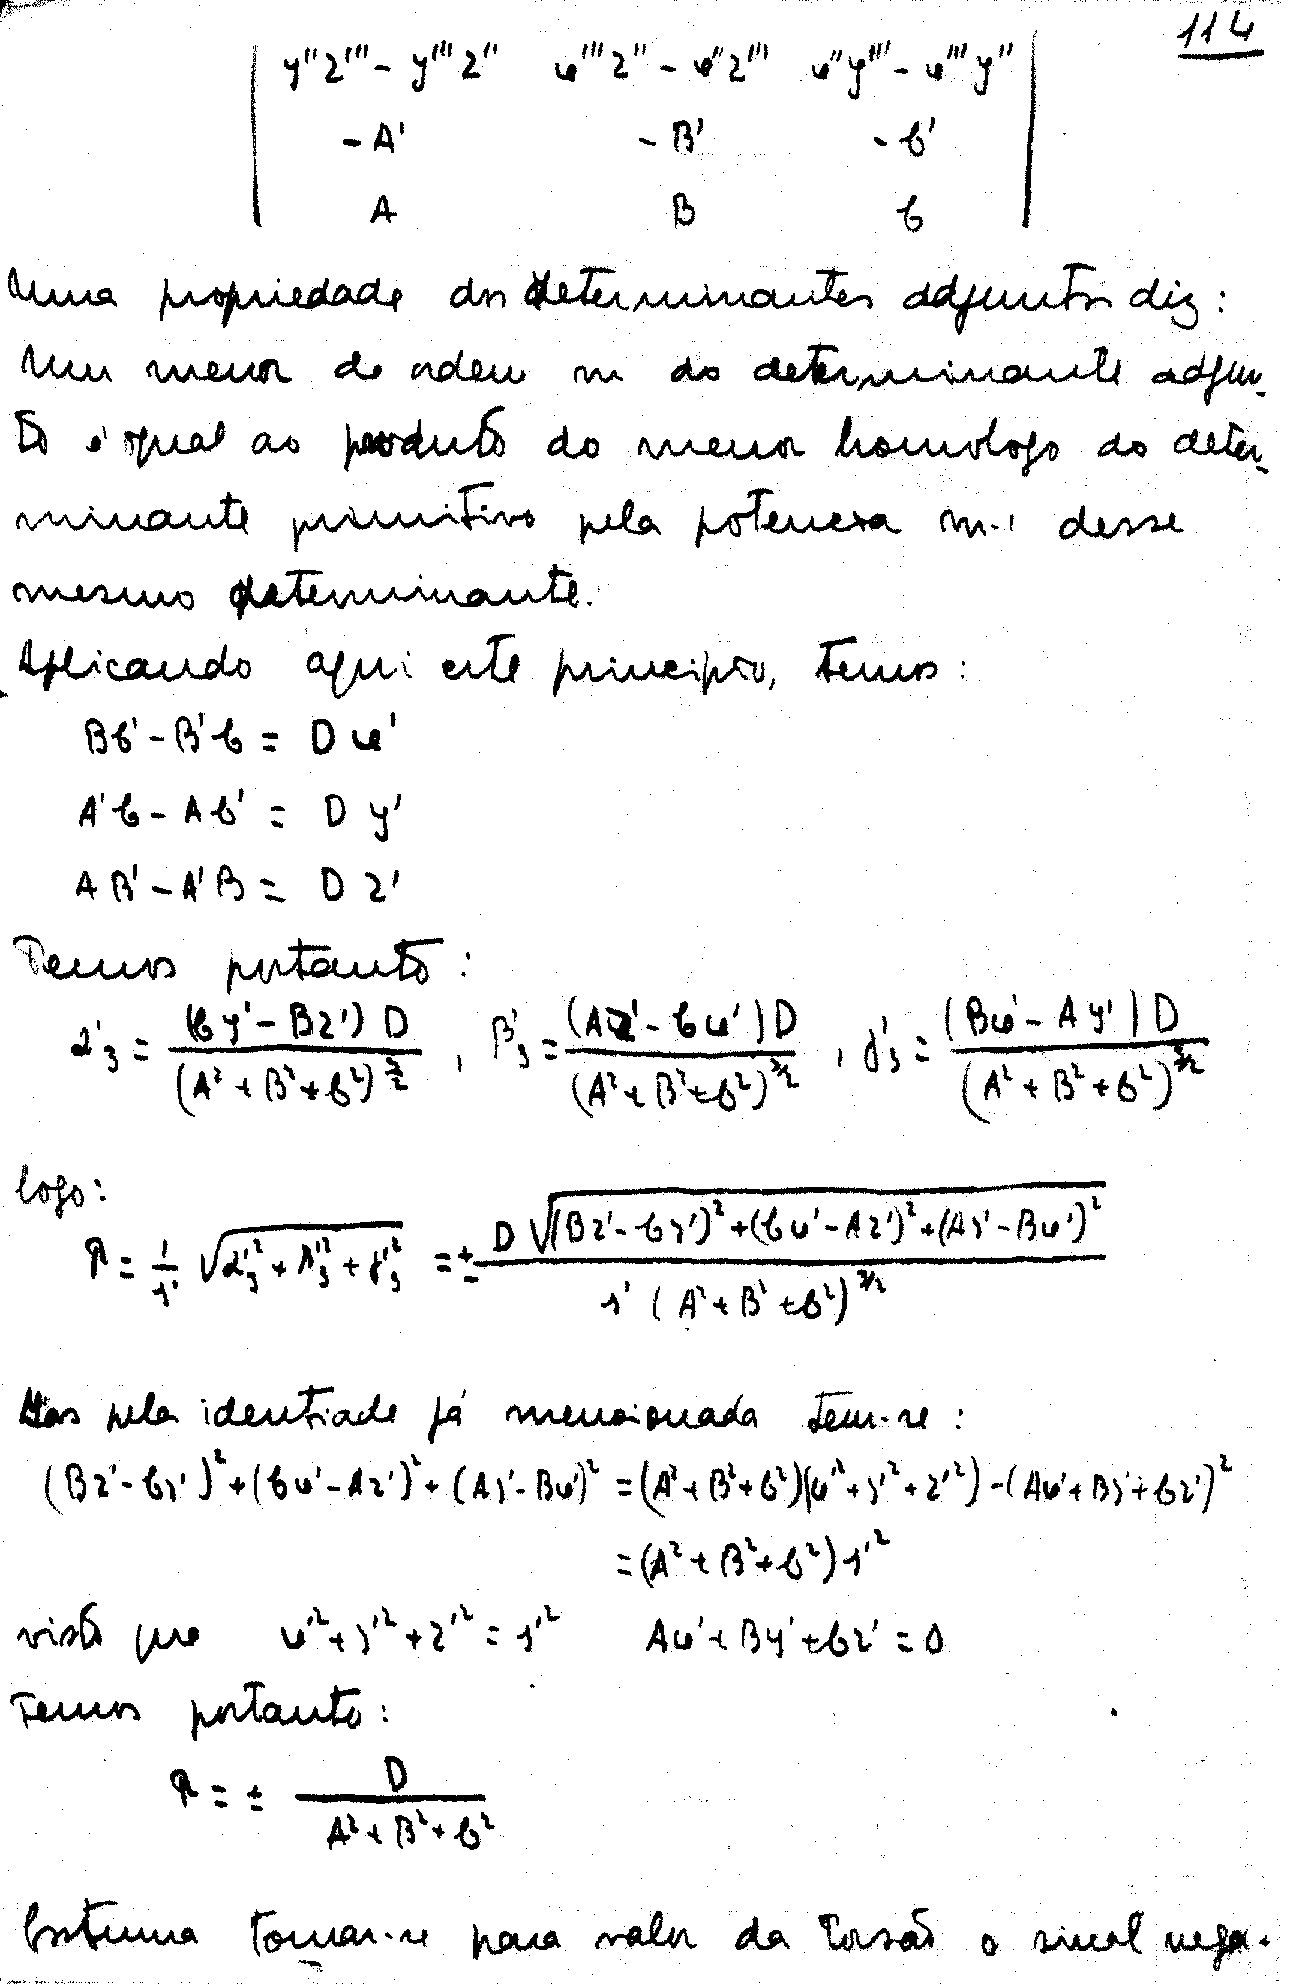 114
| y''z''' - y'''z''   x'''z'' - x''z'''   x''y''' - x'''y'' |
| -A'   -B'   -C' |
| A   B   C |
Uma propriedade dos determinantes adjuntos diz:
Um menor de ordem m do determinante adjun-
to é igual ao produto do menor homologo do deter-
minante primitivo pela potencia m-1 desse
mesmo determinante.
Aplicando aqui este principio, temos:
BC' - B'C = D x'
A'C - AC' = D y'
AB' - A'B = D z'
Temos portanto:
α'₃ = (Cy' - Bz') D / (A² + B² + C²)^{3/2} , β'₃ = (Az' - Cx') D / (A² + B² + C²)^{3/2} , γ'₃ = (Bx' - Ay') D / (A² + B² + C²)^{3/2}
logo:
R = 1/s' √(α'₃² + β'₃² + γ'₃²) = ± D √((Bz' - Cy')² + (Cx' - Az')² + (Ay' - Bx')²) / s' (A² + B² + C²)^{3/2}
Mas pela identiade já mencionada tem-se:
(Bz' - Cy')² + (Cx' - Az')² + (Ay' - Bx')² = (A² + B² + C²)(x'² + y'² + z'²) - (Ax' + By' + Cz')²
= (A² + B² + C²) s'²
visto que x'² + y'² + z'² = s'²   Ax' + By' + Cz' = 0
Temos portanto:
R = ± D / A² + B² + C²
Costuma tomar-se para valor da torsão o sinal nega-